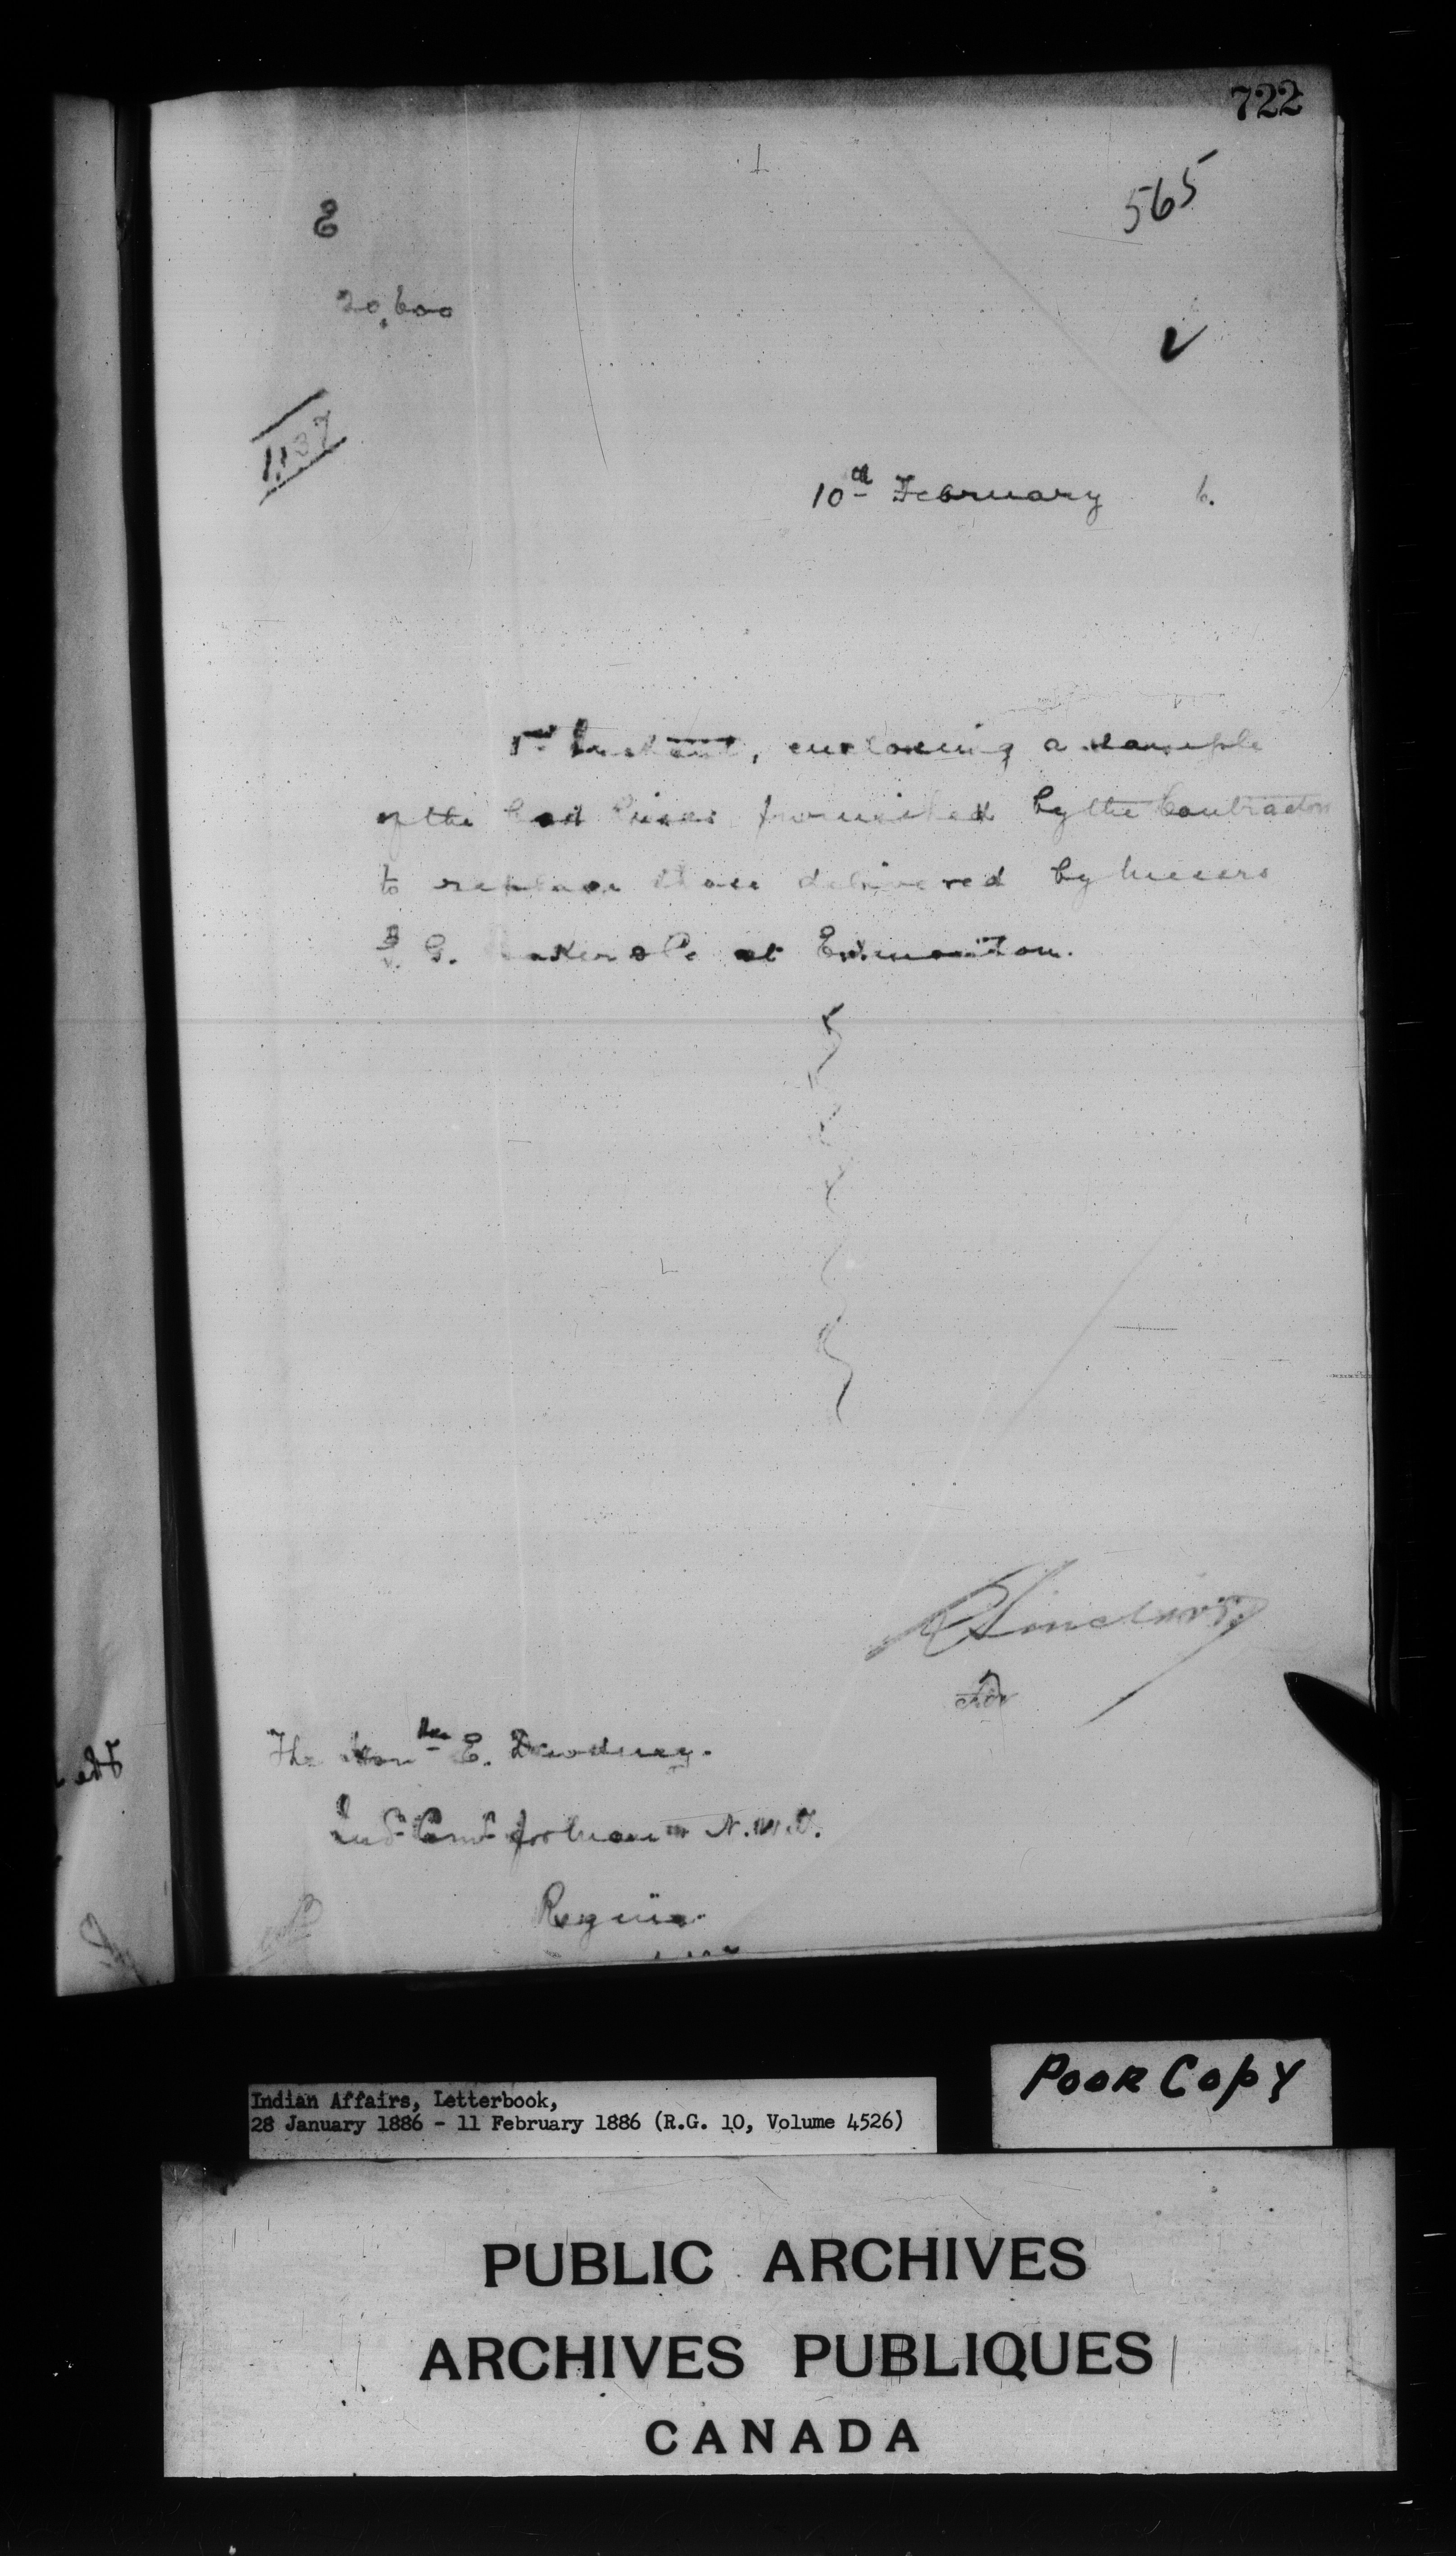 722
565
E
20,600
1137
10th February 6.
1st Instant, enclosing a sample
of the Cod Lines furnished by the Contractors
to replace those delivered by Messrs
I. G. Baker & Co at Edmonton.
Sinclair
for
The Honble E. Dewdney.
Ind. Comr for Man. & N.W.T.
Regina
POOR COPY
Indian Affairs, Letterbook,
28 January 1886 - 11 February 1886 (R.G. 10, Volume 4526)
PUBLIC ARCHIVES
ARCHIVES PUBLIQUES
CANADA